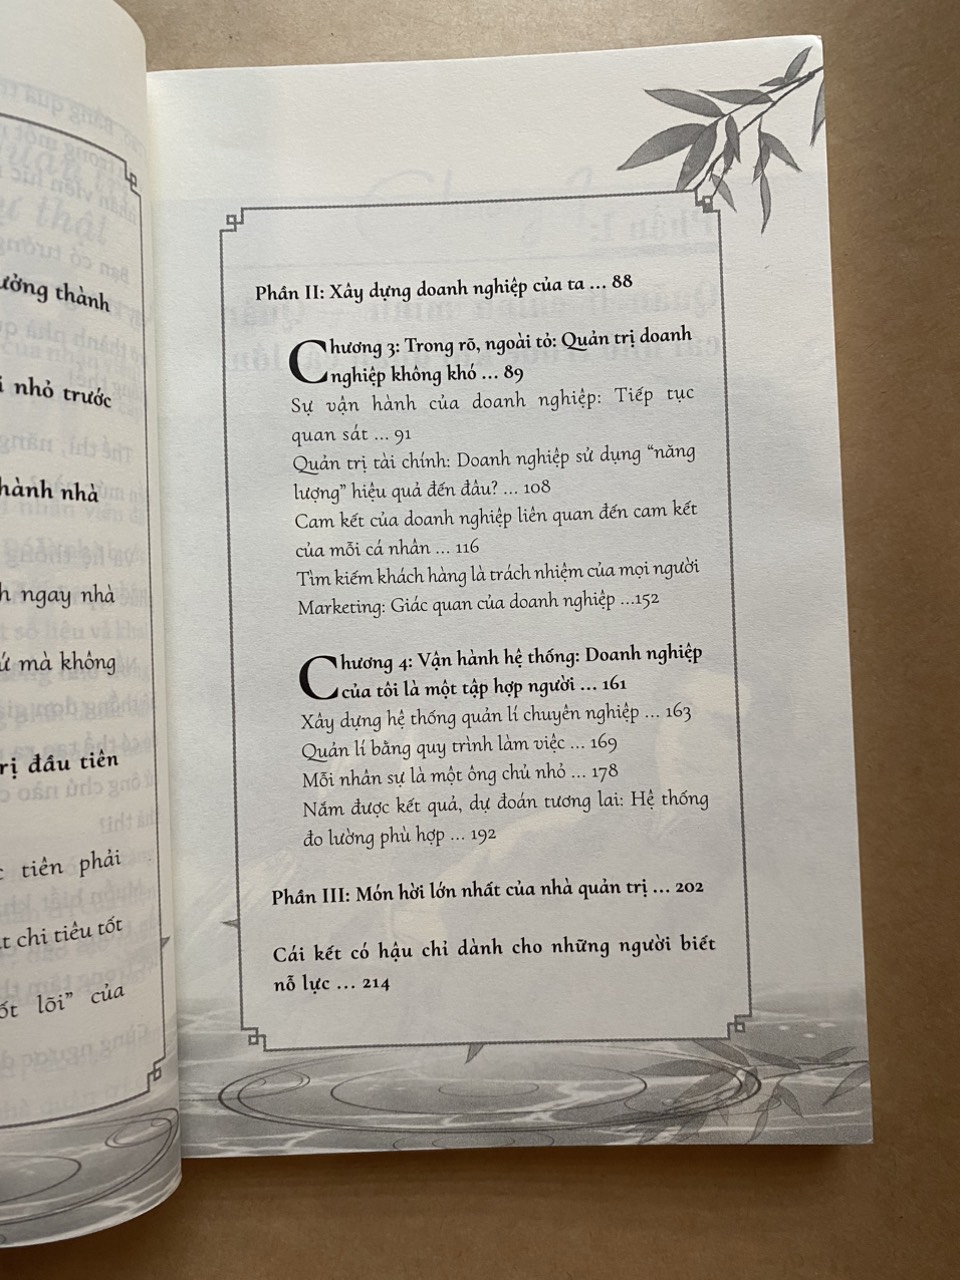 ưởng thành
nhỏ trước
hành nhà
ngay nhà
mà không
đầu tiên
tiên phải
chi tiêu tốt
lõi” của
Phần II: Xây dựng doanh nghiệp của ta ... 88
Chương 3: Trong rõ, ngoài tỏ: Quản trị doanh
nghiệp không khó ... 89
Sự vận hành của doanh nghiệp: Tiếp tục
quan sát ... 91
Quản trị tài chính: Doanh nghiệp sử dụng “năng
lượng” hiệu quả đến đâu? ... 108
Cam kết của doanh nghiệp liên quan đến cam kết
của mỗi cá nhân ... 116
Tìm kiếm khách hàng là trách nhiệm của mọi người
Marketing: Giác quan của doanh nghiệp ...152
Chương 4: Vận hành hệ thống: Doanh nghiệp
của tôi là một tập hợp người ... 161
Xây dựng hệ thống quản lí chuyên nghiệp ... 163
Quản lí bằng quy trình làm việc ... 169
Mỗi nhân sự là một ông chủ nhỏ ... 178
Nắm được kết quả, dự đoán tương lai: Hệ thống
đo lường phù hợp ... 192
Phần III: Món hời lớn nhất của nhà quản trị ... 202
Cái kết có hậu chỉ dành cho những người biết
nỗ lực ... 214